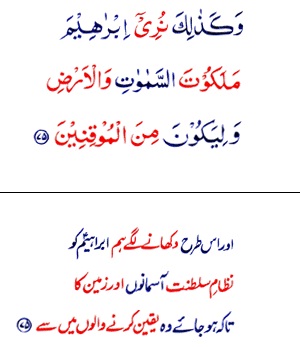 وَكَذٰلِكَ نُرِىْٓ اِبْرٰهِيْمَ
مَلَكُوْتَ السَّمٰوٰتِ وَالْاَرْضِ
وَلِيَكُوْنَ مِنَ الْمُوْقِنِيْنَ ۷۵
اور اس طرح دکھانے لگے ہم ابراہیمؑ کو
نظامِ سلطنت آسمانوں اور زمین کا
تاکہ ہو جائے وہ یقین کرنے والوں میں سے ۷۵